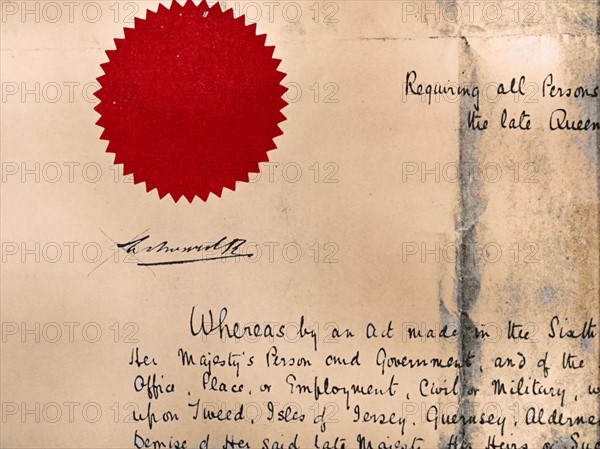 Requiring all Persons
the late Queen
Whereas by an Act made in the Sixth
Her Majesty's Person and Government, and of the
Office, Place, or Employment, Civil or Military, w
upon Tweed, Isles of Jersey, Guernsey, Alderne
Demise of Her said late Majesty Her Heirs or Suc